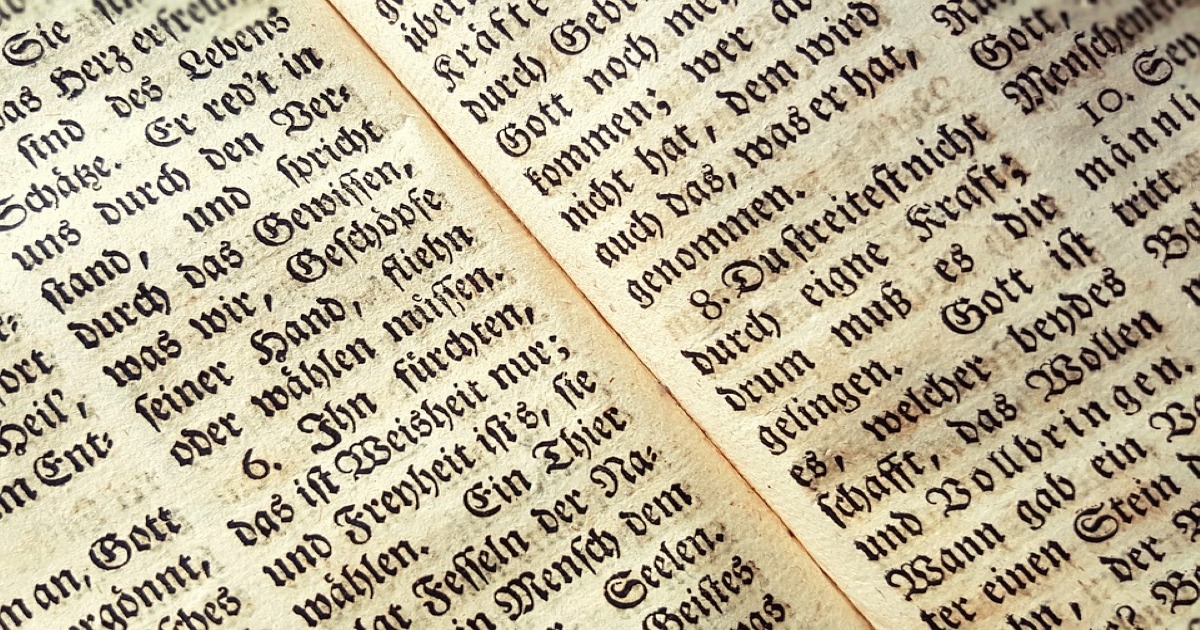 Sie
das Herz erfreun
sind des Lebens
Schätze. Er red't in
uns durch den Ver-
stand, und spricht
durch das Gewissen,
was wir, Geschöpfe
seiner Hand, fliehn
oder wählen müssen.
6. Ihn fürchten,
das ist Weisheit nur;
und Freyheit ist's, sie
wählen. Ein Thier
Fesseln der Na-
Mensch dem
Seelen.
Geistes
Heil',
Ent-
an, Gott
durch Geb
Kräfte
Gott noch
kommen; wer
nicht hat, dem wird
auch das, was er hat,
genommen.
8. Du streitest nicht
durch eigne Kraft;
drum muß es die
gelingen. Gott ist
es, welcher beydes
schafft, das Wollen
und Vollbringen.
Wann gab ein
ter einen Stein
der
Gott,
Menschen
10.
männli
tritt